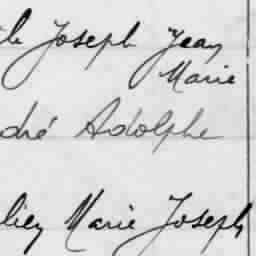 Joseph Jean
Marie
dré Adolphe
Marie Joseph